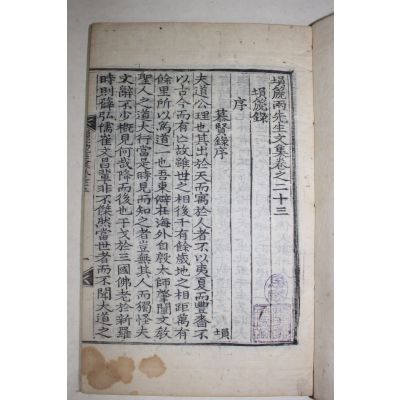 塤篪兩先生文集卷之二十三
塤篪錄
序
慕賢錄序
塤
夫道公理也其出於天而寓於人者不以夷夏而豐嗇不
以古今而有亡故雖世之相後千有餘歲地之相距萬有
餘里所以為道一也吾東僻在海外自殷太師肇闡文教
聖人之道大行當是時見而知之者豈無其人而獨怪夫
文辭不少槪見何哉降而後也干戈於三國佛老於新羅
時則薛弘儒崔文昌輩非不傑然當世者而不聞大道之